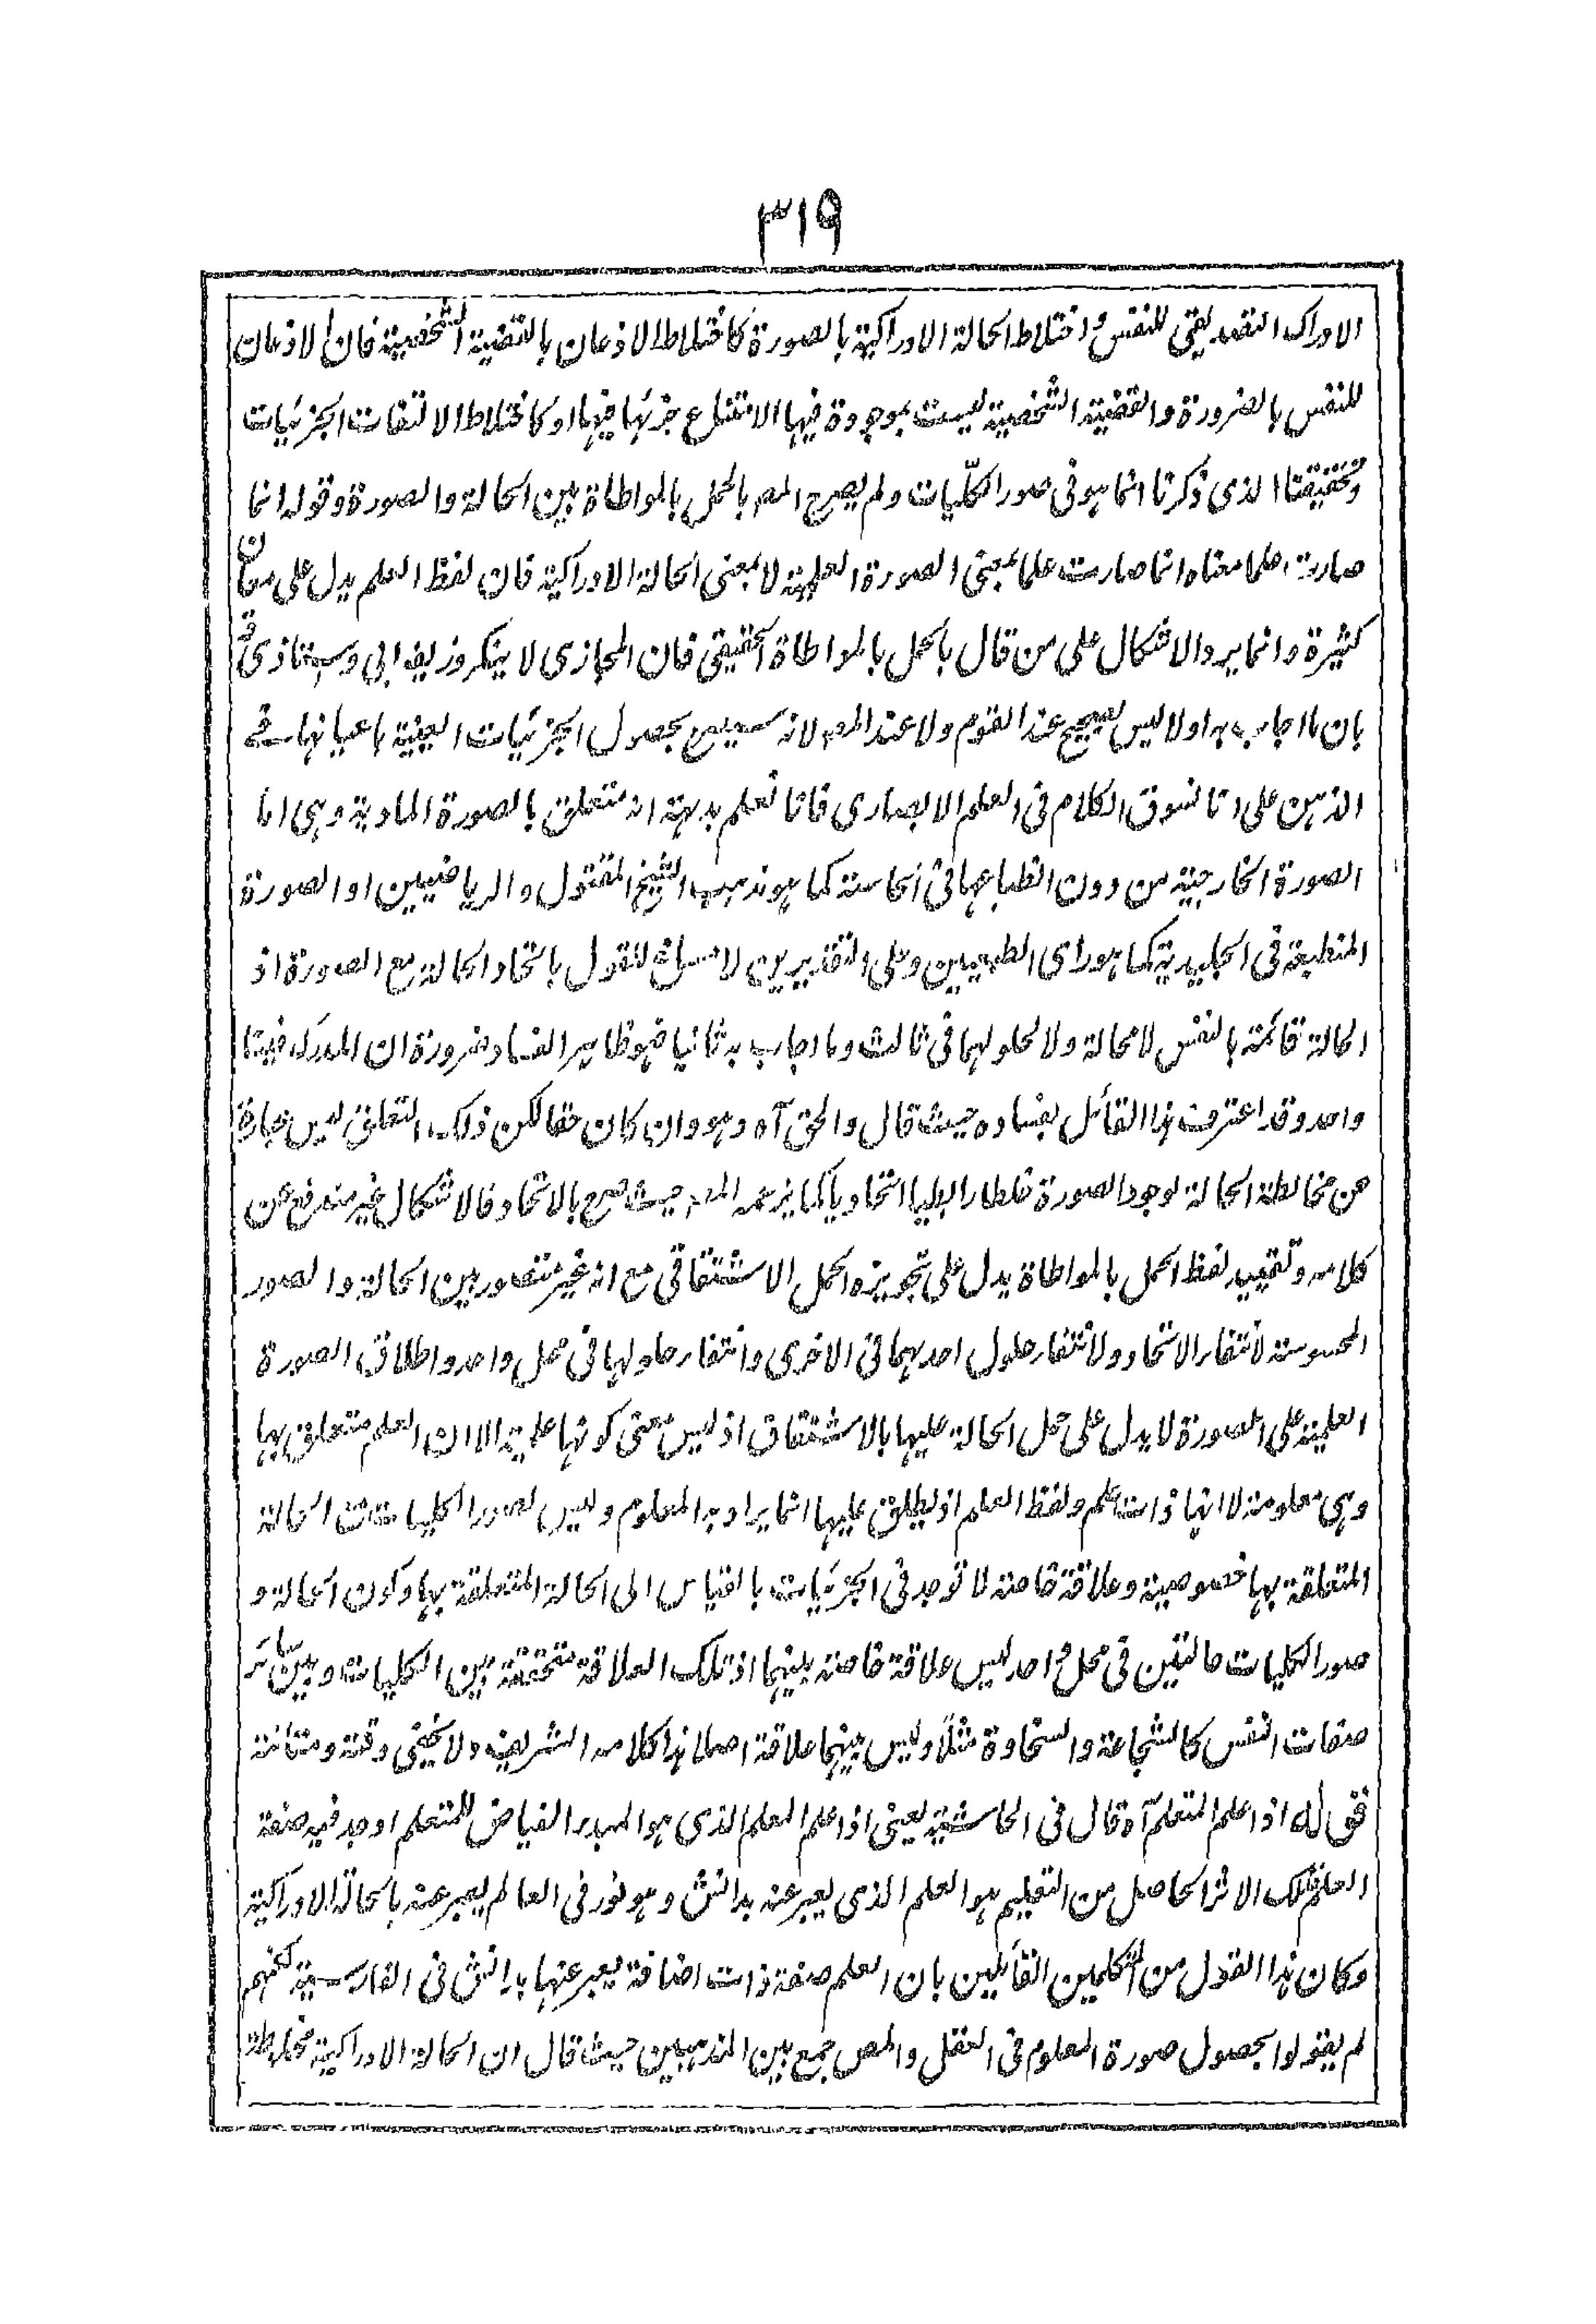 ٣١٩
الادراك التصديقى للنفس واختلاط الحالة الادراكية بالصورة كاختلاط الاذعان بالقضية الشخصية فان الاذعان
للنفس بالضرورة والقضية الشخصية ليست بموجودة فيها الامتناع جزئها فيها او كاختلاط الالتفات الجزئيات
وتحقيقنا الذى ذكرنا انما هو فى صور الكلّيات ولم يصرح المصـ بالحمل بالمواطاة بين الحالة والصورة وقوله انما
صارت علما معناه انما صارت علما بمعنى الصورة العلمية لا بمعنى الحالة الادراكية فان لفظ العلم يدل على معان
كثيرة وانما يرد الاشكال على من قال بالحمل بالمواطاة الحقيقى فان المجازى لا ينكر وزيفه ابى واستاذى قد
بان ما اجاب به اولا ليس بصحيح عند القوم ولا عند المصـ لانه سيصرح بحصول الجزئيات العينية باعيانها فى
الذهن على انا نسوق الكلام فى العلم الابصارى فانا نعلم بديهة انه متعلق بالصورة المادية وهى اما
الصورة الخارجية من دون انطباعها فى الحاسة كما هو مذهب الشيخ المقتول والرياضيين او الصورة
المنطبعة فى الجليدية كما هو راى الطبعيين وعلى التقديرين لا مساغ للقول باتحاد الحالة مع الصورة اذ
الحالة قائمة بالنفس لا محالة ولا لحلولهما فى ثالث وما اجاب به ثانيا فهو ظاهر الفساد ضرورة ان المدرك فينا
واحد وقد اعترف هذا القائل بفساده حيث قال والحق آه وهو وان كان حقا لكن ذلك التعلق ليس عبارة
عن مخالطة الحالة لوجود الصورة خلطا رابطيا اتحاديا كما يزعمه المصـ حيث صرح بالاتحاد فالاشكال غير مندفع عن
كلامه وتقييد لفظ الحمل بالمواطاة يدل على تجويزه الحمل الاشتقاقى مع انه غير متصور بين الحالة والصور
المحسوسة لانتفار الاتحاد ولانتفار حلول احدهما فى الاخرى وانتفار حلولهما فى محل واحد واطلاق الصورة
العلمية على الصورة لا يدل على حمل الحالة عليها بالاشتقاق اذ ليس معنى كونها علمية الا ان العلم متعلق بها
وهى معلومة لا انها ذات علم ولفظ العلم اذ يطلق عليها انما يراد به المعلوم وليس لصور الكليات من الحالة
المتعلقة بها خصوصية وعلاقة خاصة لا توجد فى الجزئيات بالقياس الى الحالة المتعلقة بها وكون الحالة و
صور الكليات حالتين فى محل واحد ليس علاقة خاصة بينهما اذ تلك العلاقة متحققة بين الكليات وبين سائر
صفات النفس كالشجاعة والسخاوة مثلا وليس بينهما علاقة اصلا هذا كلامه الشريف ولا يخفى دقته ومتانته
قوله اذا علم المتعلم آه قال فى الحاشية يعنى اذا علم المعلم الذى هو المبدر الفياض للمتعلم اوجد فيه صفة
العلم فتلك الاثر الحاصل من التعليم هو العلم الذى يعبر عنه بدانش وهو نور فى العالم يعبر عنه بالحالة الادراكية
وكان هذا القول من المتكلمين القائلين بان العلم صفة ذات اضافة يعبر عنها بدانش فى الفارسية لكنهم
لم يقولوا بحصول صورة المعلوم فى العقل والمص جمع بين المذهبين حيث قال ان الحالة الادراكية مخلوطة